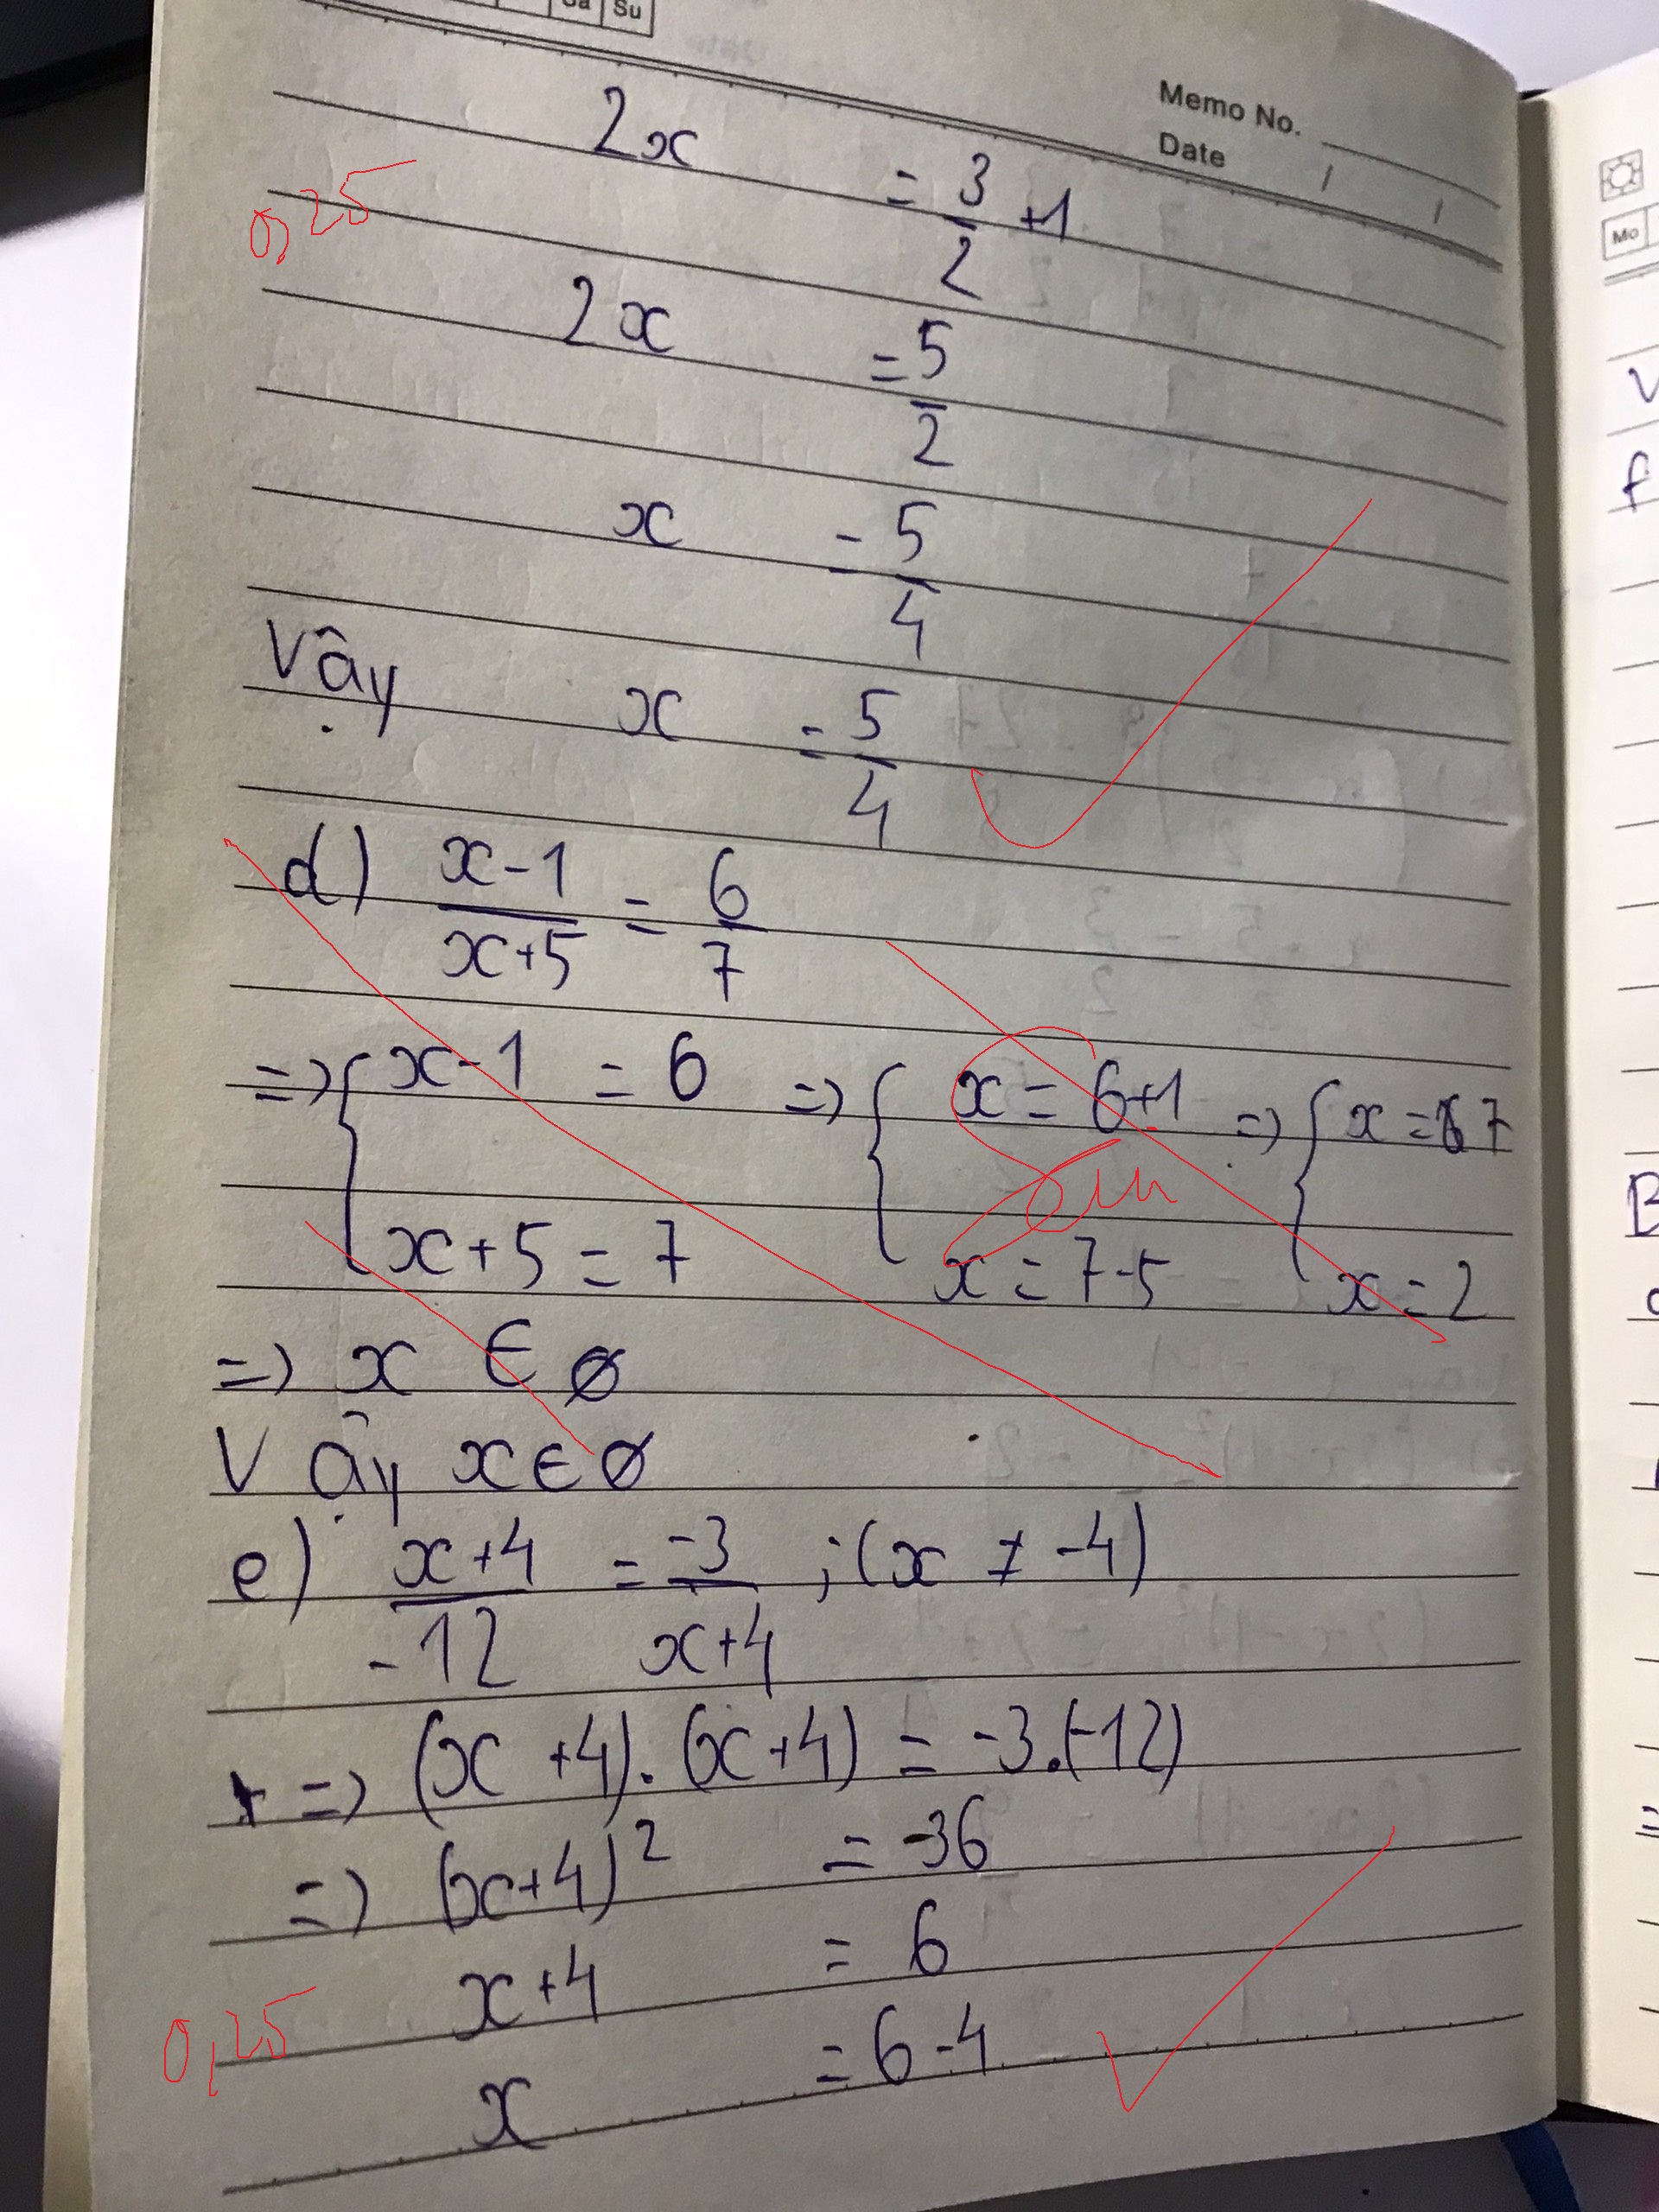 Sa Su
Memo No.
Date / /
2x = 3/2 + 1
0,25
2x = 5/2
x = 5/4
Vậy x = 5/4
d) (x-1)/(x+5) = 6/7
=> { x-1 = 6 => { x = 6+1 => { x = 7
x+5 = 7 x = 7-5 x = 2
Sai
=> x ∈ ∅
Vậy x ∈ ∅
e) (x+4)/-12 = -3/(x+4) ; (x ≠ -4)
=> (x+4).(x+4) = -3.(-12)
=> (x+4)² = -36
x+4 = 6
0,25
x = 6-4
Mo
V
f
B